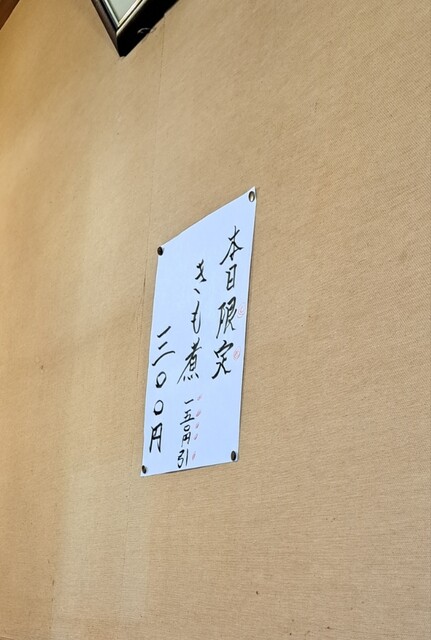 本日限定
きも煮 一五〇円引
三〇〇円